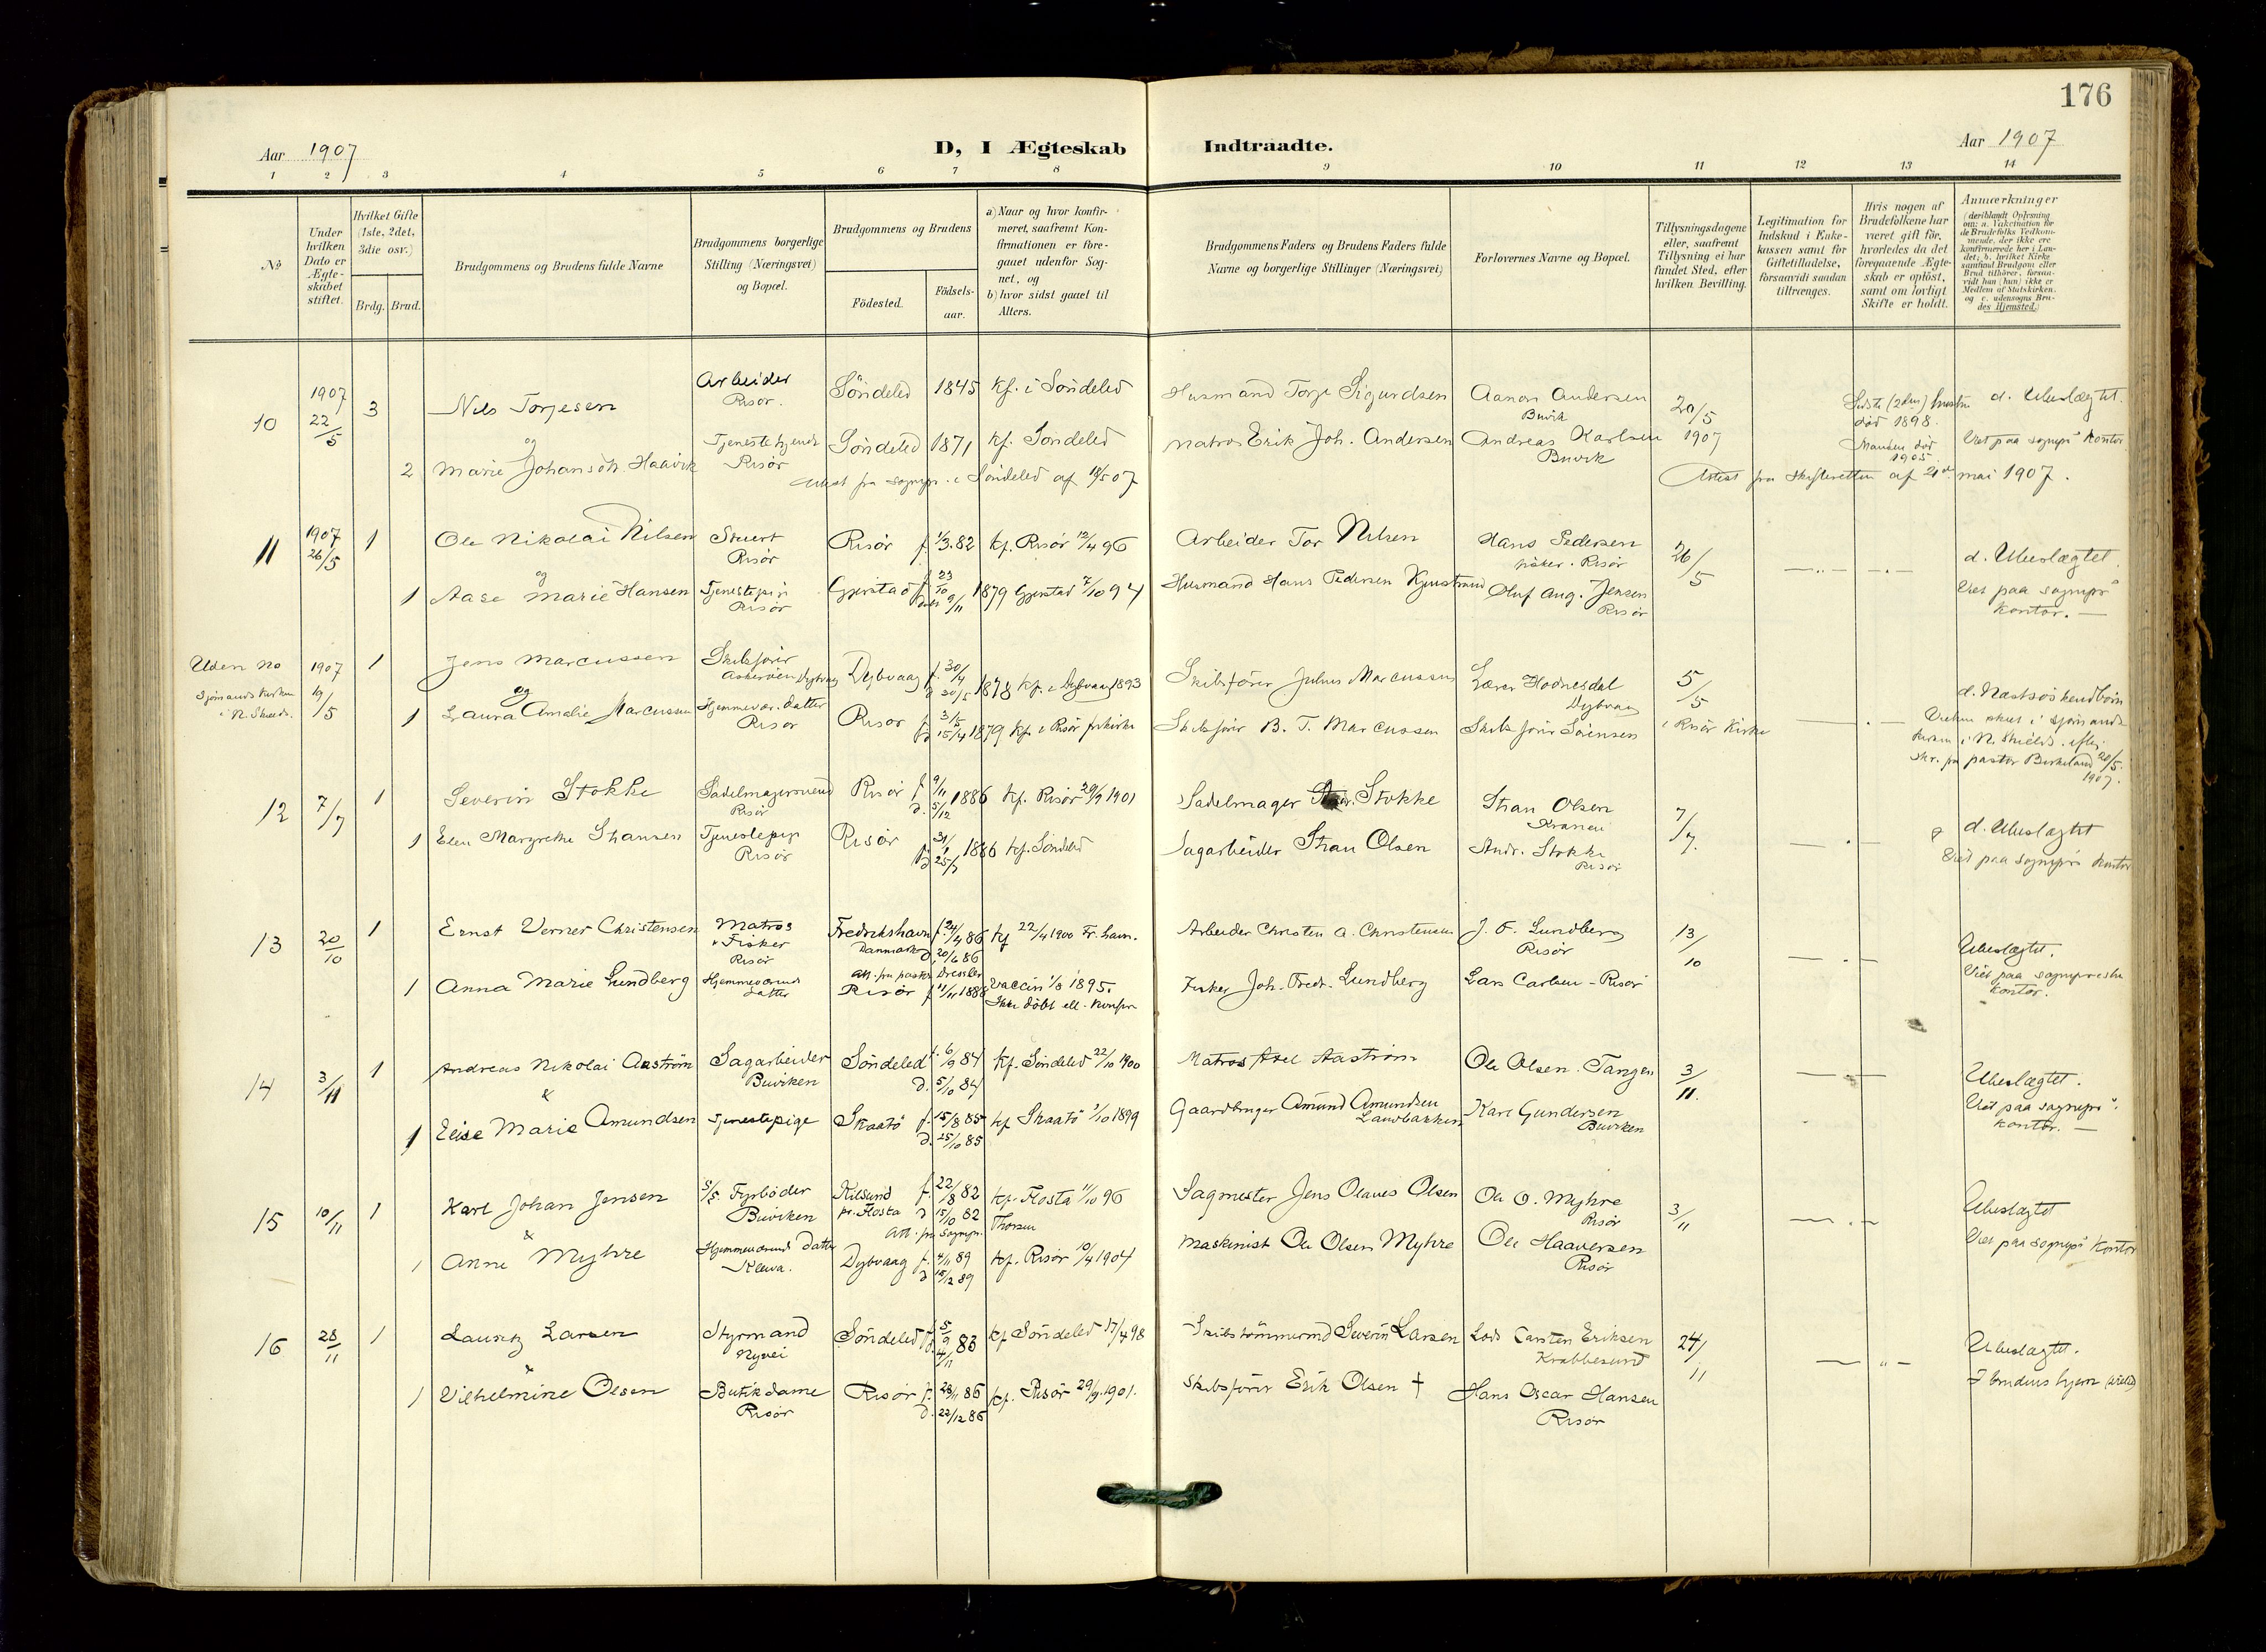 176
Aar 1907
D, I Ægteskab Indtraadte.
Aar 1907
1 2 3 4 5 6 7 8 9 10 11 12 13 14
No
Under hvilken Dato er Ægteskabet stiftet.
Hvilket Gifte (1ste, 2det, 3die osv.)
Brdg. Brud.
Brudgommens og Brudens fulde Navne
Brudgommens borgerlige Stilling (Næringsvei) og Bopæl.
Brudgommens og Brudens
Födested.
Födselsaar.
a) Naar og hvor konfirmeret, saafremt Konfirmationen er foregaaet udenfor Sognet, og
b) hvor sidst gaaet til Alters.
Brudgommens Faders og Brudens Faders fulde Navne og borgerlige Stillinger (Næringsvei)
Forlovernes Navne og Bopæl.
Tillysningsdagene eller, saafremt Tillysning ei har fundet Sted, efter hvilken Bevilling.
Legitimation for Indskud i Enkekassen samt för Giftetilladelse, forsaavidt saadan tiltrænges.
Hvis nogen af Brudefolkene har været gift för, hvorledes da det foregaaende Ægteskab er oplöst, samt om lovligt Skifte er holdt.
Anmerkninger (deriblandt Oplysning om: a. Vakcination for de Brudefolks Vedkommende, der ikke ere konfirmerede her i Landet; b. hvilket Kirkesamfund Brudgom eller Brud tilhörer, forsaavidt han (hun) ikke er Medlem af Statskirken. og c. udensogns Brudes Hjemsted.)
10 1907 22/5 3 Nils Torjesen Arbeider Risør. Söndeled 1845 Kf. i Söndeled Husmand Torje Sigurdsen Aanon Andersen Buvik 20/5 1907 Sidste (2den) hustru død 1898. d. Ubeslægtet.
og
2 Marie Johansdtr. Haavik Risør Söndeled 1871 Kf. Söndeled Matros Erik Joh. Andersen Andreas Karlsen Buvik Manden død 1905 Viet paa sognepr. kontor
Attest fra sognepr. i Söndeled af 18/5 07 Attest fra Skifteretten af 21de mai 1907.
11 1907 26/5 1 Ole Nikolai Nilsen Stuert Risør Risör f. 1/3.82 Kf. Risør 12/4 96 Arbeider Tor Nilsen Hans Pedersen Risør 26/5 — " — " — d. Ubeslægtet.
og
1 Aase Marie Hansen Tjenestepi Risør Gjerstad f. 23/10 døbt 9/11 1879 Gjerstad 7/10 94 Husmand Hans Pedersen Oluf Aug. Jensen Risør Viet paa sognepr. kontor. —
Uden No Sjømandskirken i N. Shields. 1907 19/5 1 Jens Marcussen Skibsfører Askerøen Dybvaag Dybvaag f. 30/4 d 20/5 1878 Kf. i Dybvaag 1893 Skibsfører Julius Marcussen Lærer Hodnesdal Dybvaag 5/5 d. Næstsøskendbørn
og
1 Laura Amalie Marcussen Hjemmevær. datter Risør Risør f 31/5 d 15/4 1879 Kf. i Risør frikirke Skibsfører B. T. Marcussen Skibsfører Sörensen i Risør Kirke — " — Vielsen skeet i Sjømandskirken i N. Shields, iflg. skr. fra pastor Birkeland 20/5. 1907.
12 7/7 1 Severin Stokke Sadelmagersvend Risør Risør f 9/11 d. 5/12 1886 Kf. Risør 29/9 1901 Sadelmager Andr. Stokke Sthan Olsen Kranen 7/7. — " — d. Ubeslægtet
1 Elen Margrethe Sthansen Tjenestepige Risør Risør 31/1 d 25/7 1886 Kf. Søndeled Sagarbeider Sthan Olsen Andr. Stokke Risør Viet paa sognepr. kontor
13 20/10 1 Ernst Verner Christensen Matros + Fisker Risør Fredrikshavn Danmark f. 24/4 86 d. 20/6 86 Kf 22/4 1900 Fr. havn. Arbeider Christen A. Christensen J. F. Lundberg Risør 13/10 — " — Ubeslægtet.
Att. fra pastor Dressler
1 Anna Marie Lundberg Hjemmeværende datter Risør f 11/11 1888 Vaccin 1/8 1895. Ikke döbt ell. konfir. Fisker Joh. Fredr. Lundberg Lars Carlsen - Risør Viet paa sogneprestens kontor.
14 3/11 1 Andreas Nikolai Aaström Sagarbeider Buviken Söndeled f. 6/9 84 D. 5/10 84 Kf. Söndeled 22/10 1900 Matros Axel Aaström Ole Olsen Tangen 3/11. — " — Ubeslægtet.
&
1 Elise Marie Amundsen Tjenestepige Skaatö f. 15/8 85 D. 25/10 85 Kf Skaatö 1/10 1899 Gaardbruger Amund Amundsen Landbakken Karl Gundersen Buviken Viet paa sognepr. kontor. —
15 10/11 1 Karl Johan Jensen Fyrböder Buviken Kilsund pr. Flosta f. 22/8 82 d 15/10 82 Kf. Flosta 11/10 96 Sagmester Jens Olaves Olsen Ole O. Myhre Risør 3/11 — " — Ubeslægtet
& Att. fra sognepr. Thorsen
1 Anne Myhre Hjemmeværende datter Dybvaag f. 4/11 89 d 15/12 89 Kf. Risør 10/4 1904 Maskinist Ole Olsen Myhre Ole Haaversen Risør Viet paa sognepr. kontor
16 28/11 1 Lauritz Larsen Styrmand Nyvei Söndeled f. 5/9 d. 4/11 83 Kf Söndeled 17/4 98 Skibstömmermd Severin Larsen Lods Carsten Eriksen Krabbesund 24/11 — " — Ubeslægtet.
&
1 Vilhelmine Olsen Butikdame Risør Risør f. 28/11 86 d. 22/12 86 Kf. Risør 29/9. 1901. Skibsfører Erik Olsen † Hans Oscar Hansen Risør I brudens hjem (viede)